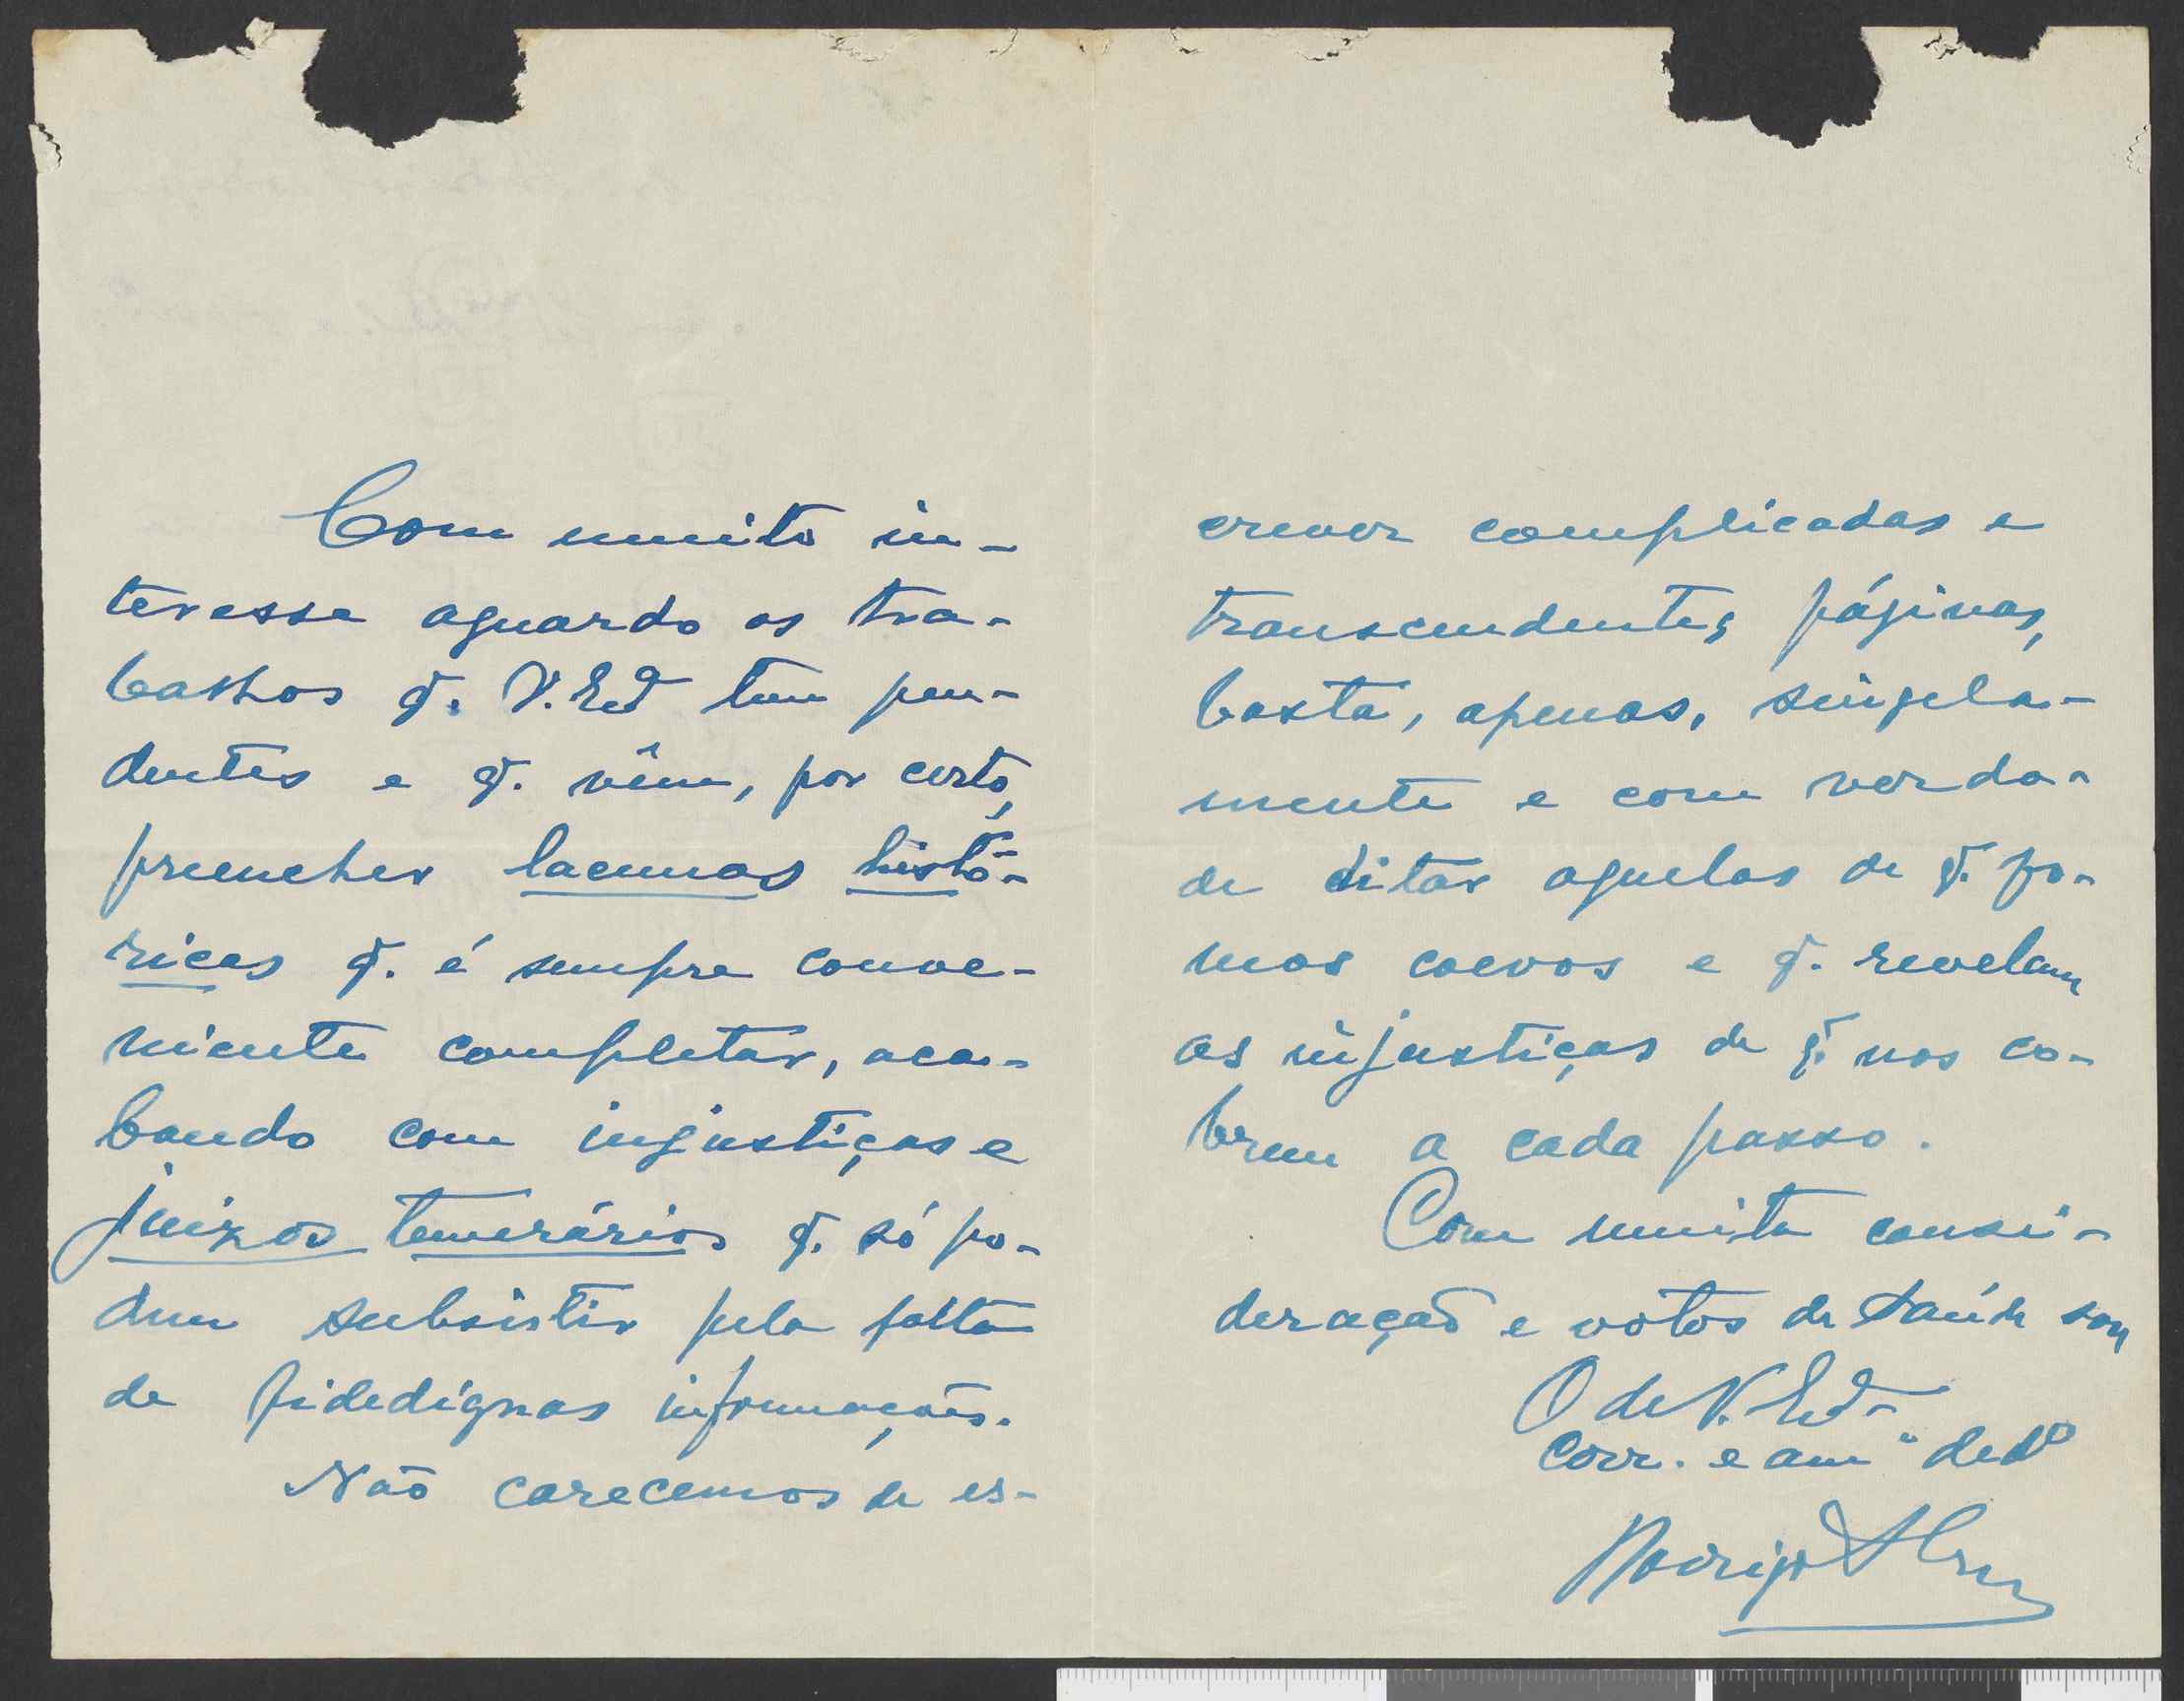 Com muito in-
teresse aguardo os tra-
balhos q. V. Exª tem pen-
dentes e q. vêm, por certo,
preencher lacunas histó-
ricas q. é sempre conve-
niente completar, aca-
bando com injustiças e
juizos temerários q. só po-
dem subsistir pela falta
de fidedignas informações.
Não carecemos de es-
crever complicadas e
transcendentes páginas,
basta, apenas, singela-
mente e com verda-
de ditar aquelas de q. fo-
mos coevos e q. revelam
as injustiças de q. nos co-
brem a cada passo.
Com muita consi-
deração e votos de saúde sou
O de V. Exª
Corr. e amº dedº
Rodrigo